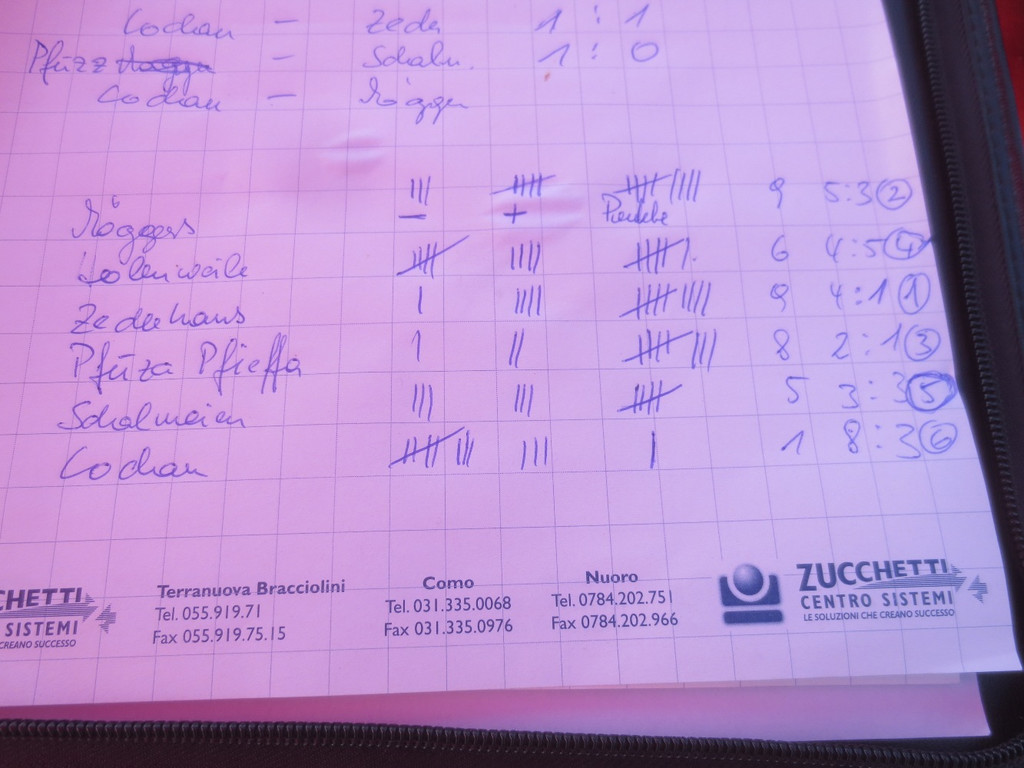 Cochan - Zeder 1 : 1
Pfüzz - Schalm. 1 : 0
Cochan - Röggen
||| |||| |||| |||| 9 5:3 2
Röggers - + Punkte
|||| |||| |||| |. 6 4:5 4
Zederhaus | |||| |||| |||| 9 4:1 1
Pfüza Pfieffa | || |||| ||| 8 2:1 3
Schalmeien ||| ||| |||| 5 3:3 5
Cochan |||| ||| ||| | 1 8:3 6
CHETTI
SISTEMI
CREANO SUCCESSO
Terranuova Bracciolini
Tel. 055.919.71
Fax 055.919.75.15
Como
Tel. 031.335.0068
Fax 031.335.0976
Nuoro
Tel. 0784.202.751
Fax 0784.202.966
ZUCCHETTI
CENTRO SISTEMI
LE SOLUZIONI CHE CREANO SUCCESSO